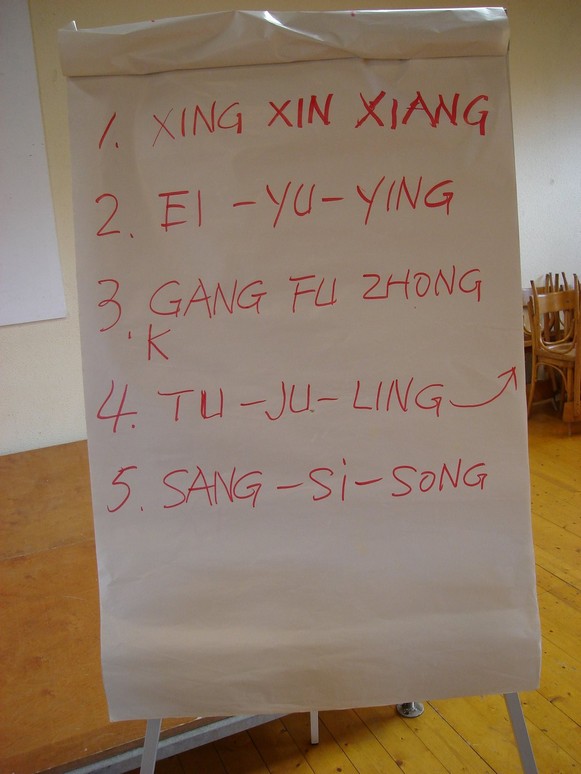 1. XING XIN XIANG
2. EI - YU - YING
3. GANG FU ZHONG
K
4. TU - JU - LING
5. SANG - Si - SONG